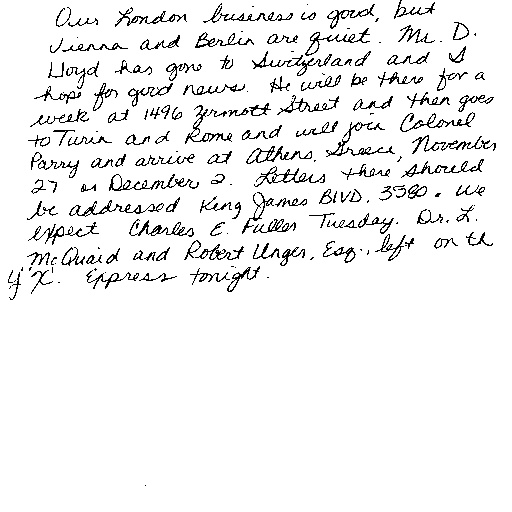 Our London business is good, but
Vienna and Berlin are quiet. Mr. D.
Lloyd has gone to Switzerland and I
hope for good news. He will be there for a
week at 1496 Zermott Street and then goes
to Turin and Rome and will join Colonel
Parry and arrive at Athens, Greece, November
27 or December 2. Letters there should
be addressed King James BLVD. 3580. We
expect Charles E. Fuller Tuesday. Dr. L.
McQuaid and Robert Unger, Esq., left on th
y "X". Express tonight.